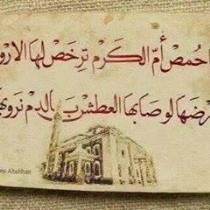 حمص أم الكرم ترخص لها الارو
رضها لو صابها العطش بالدم نروي
Altahhan